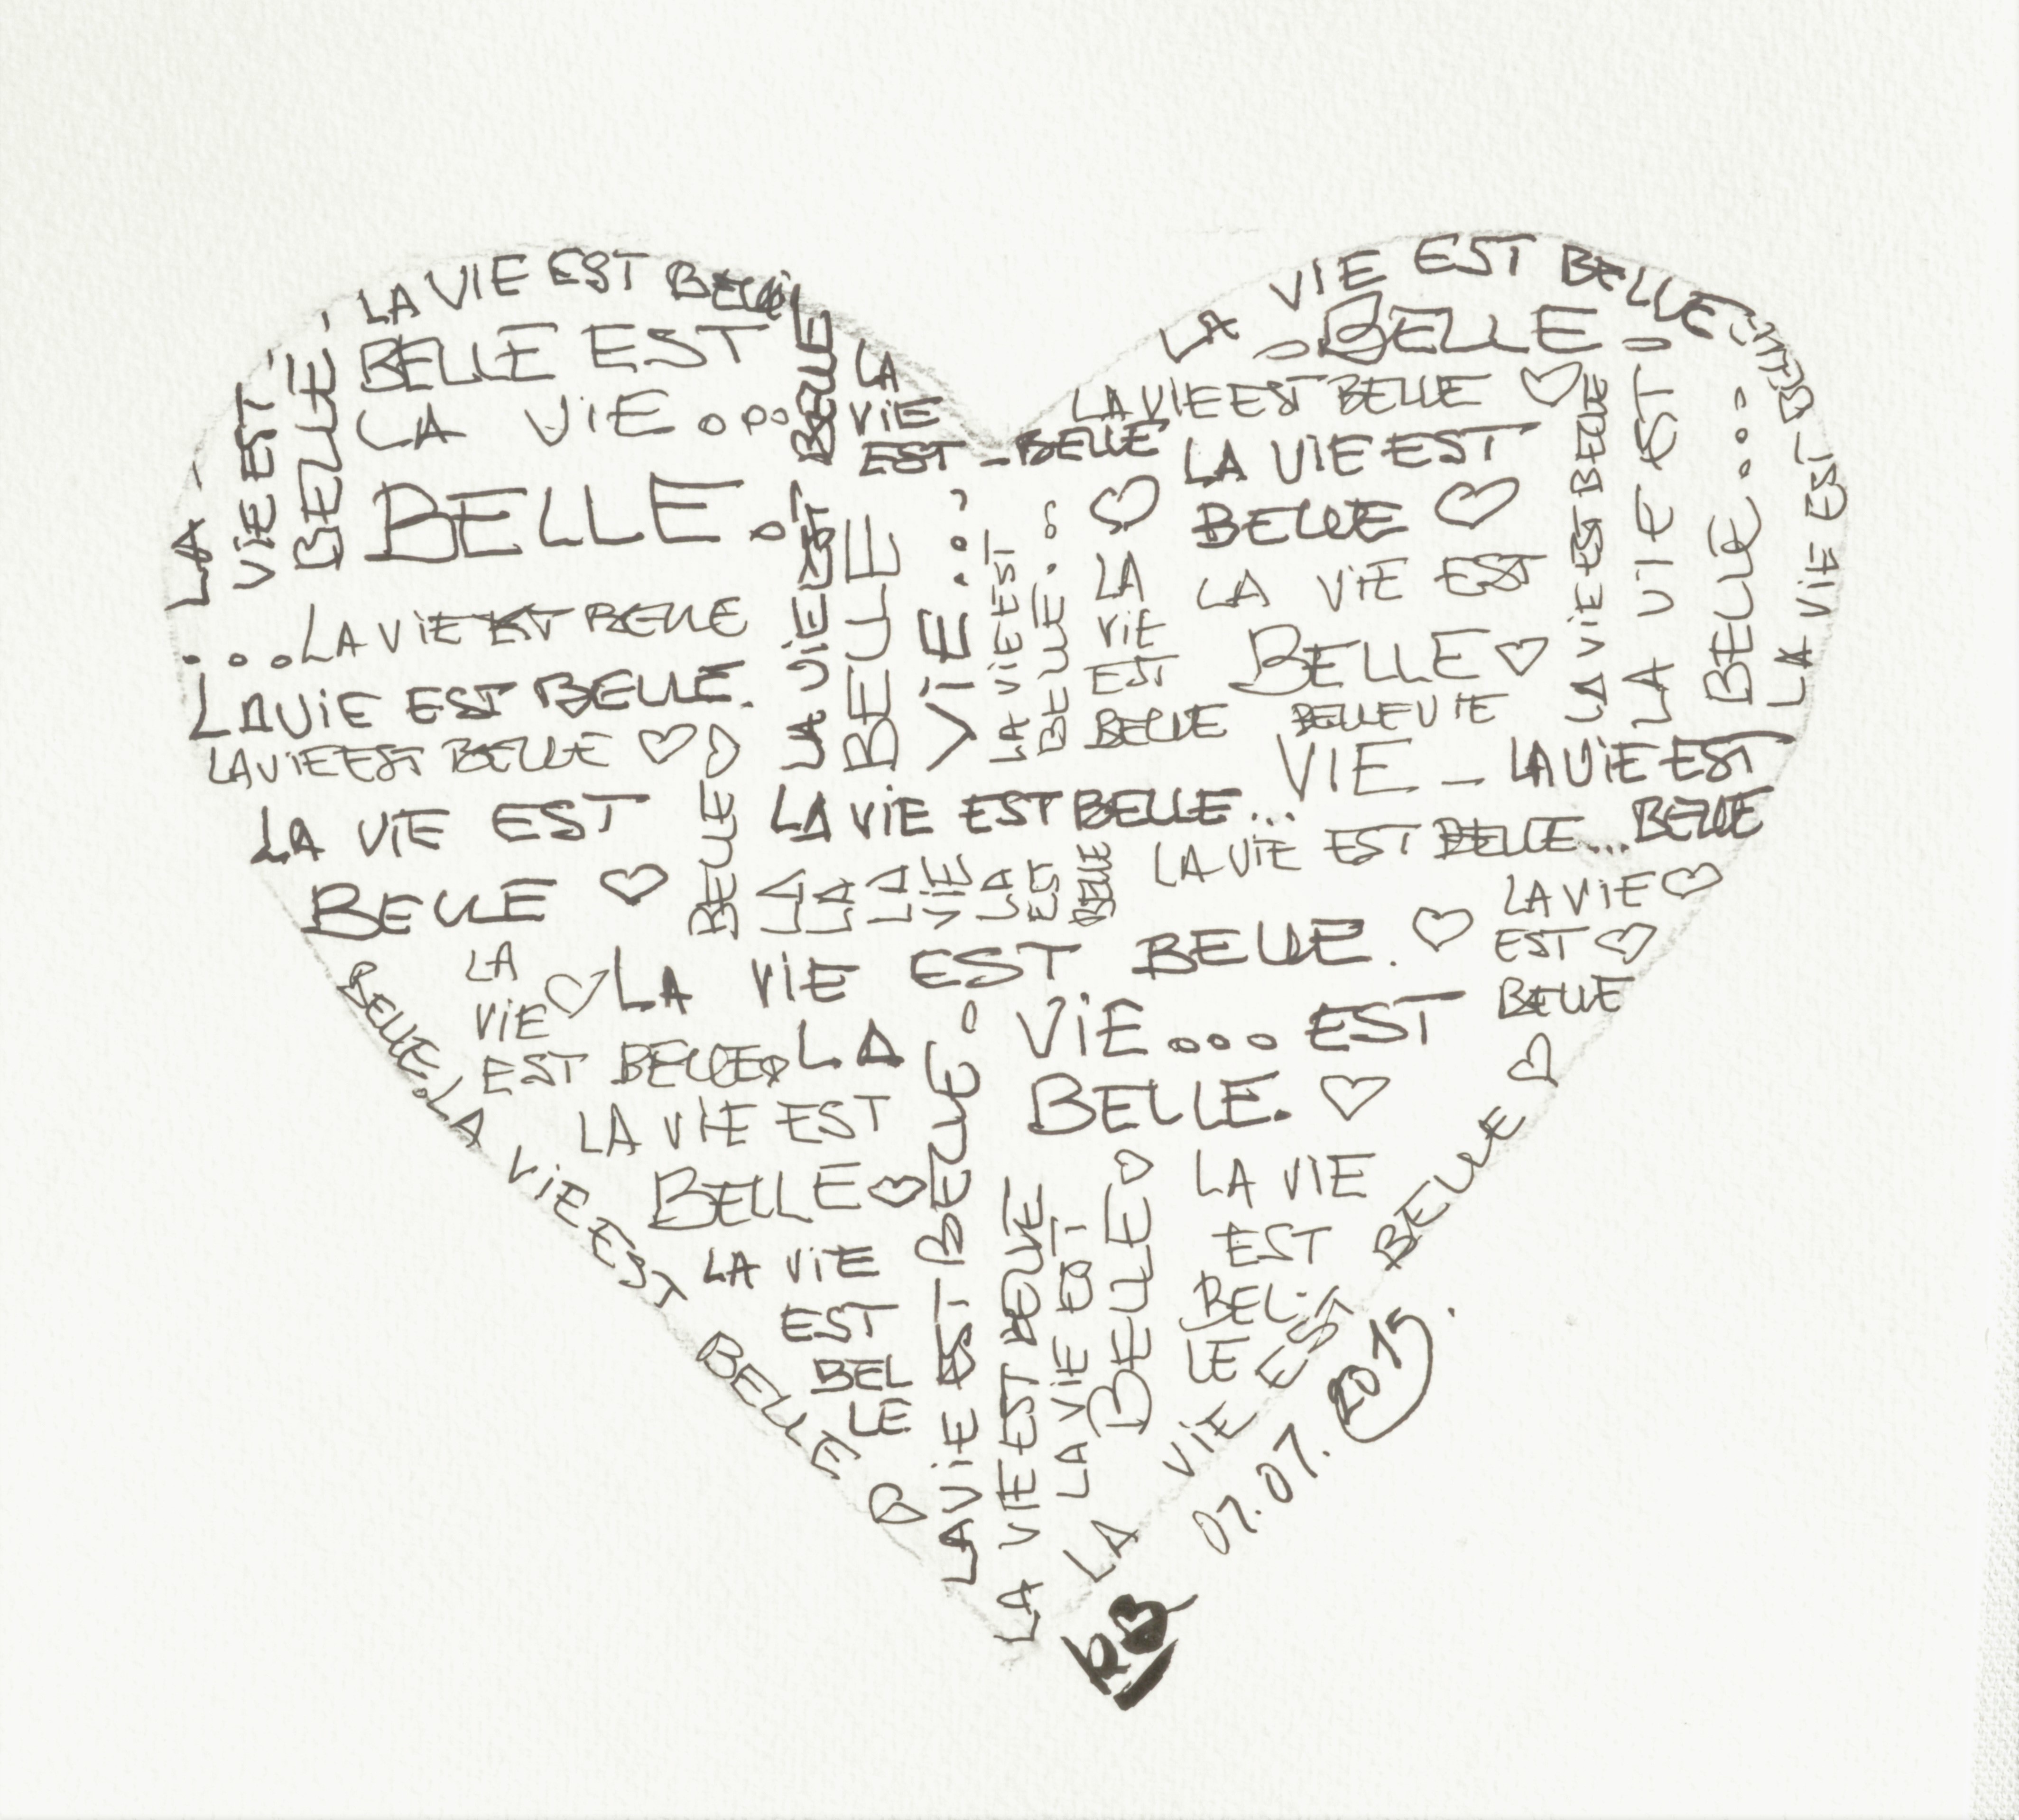 LA VIE EST BELLE
BELLE EST
LA VIE...
BELLE.
LA -
VIE EST
BELLE,
...LA VIE EST BELLE
LA VIE EST BELLE.
LA VIE EST BELLE
LA VIE EST
BELLE
BELLE
LA VIE EST BELLE
BELLE
LA
VIE
EST - BELLE
VIE...
LA VIE EST
BELLE...
LA VIE EST BELLE
BELLE
LA VIE EST BELLE
LA VIE EST
BELLE
LA
VIE
EST
BELLE
LA VIE EST
BELLE
BELLE VIE
VIE - LA VIE EST
BELLE
LA VIE EST BELLE
LA VIE EST
BELLE...
LA VIE EST BELLE
LA VIE EST BELLE...
LA VIE EST BELLE...
LA
LA
LA
VIE
LA
EST
BELLE
LA VIE
EST
BELLE
LA VIE EST BELLE.
LA
VIE
EST BELLE
LA VIE... EST
BELLE.
LA VIE EST
BELLE
LA VIE
EST
BEL
LE
BELLE.LA VIE EST BELLE
LA VIE EST BELLE.
LA VIE EST BELLE
LA VIE EST
BELLE
LA VIE
EST
BEL-
LE
LA VIE EST BELLE
07.07.2015.